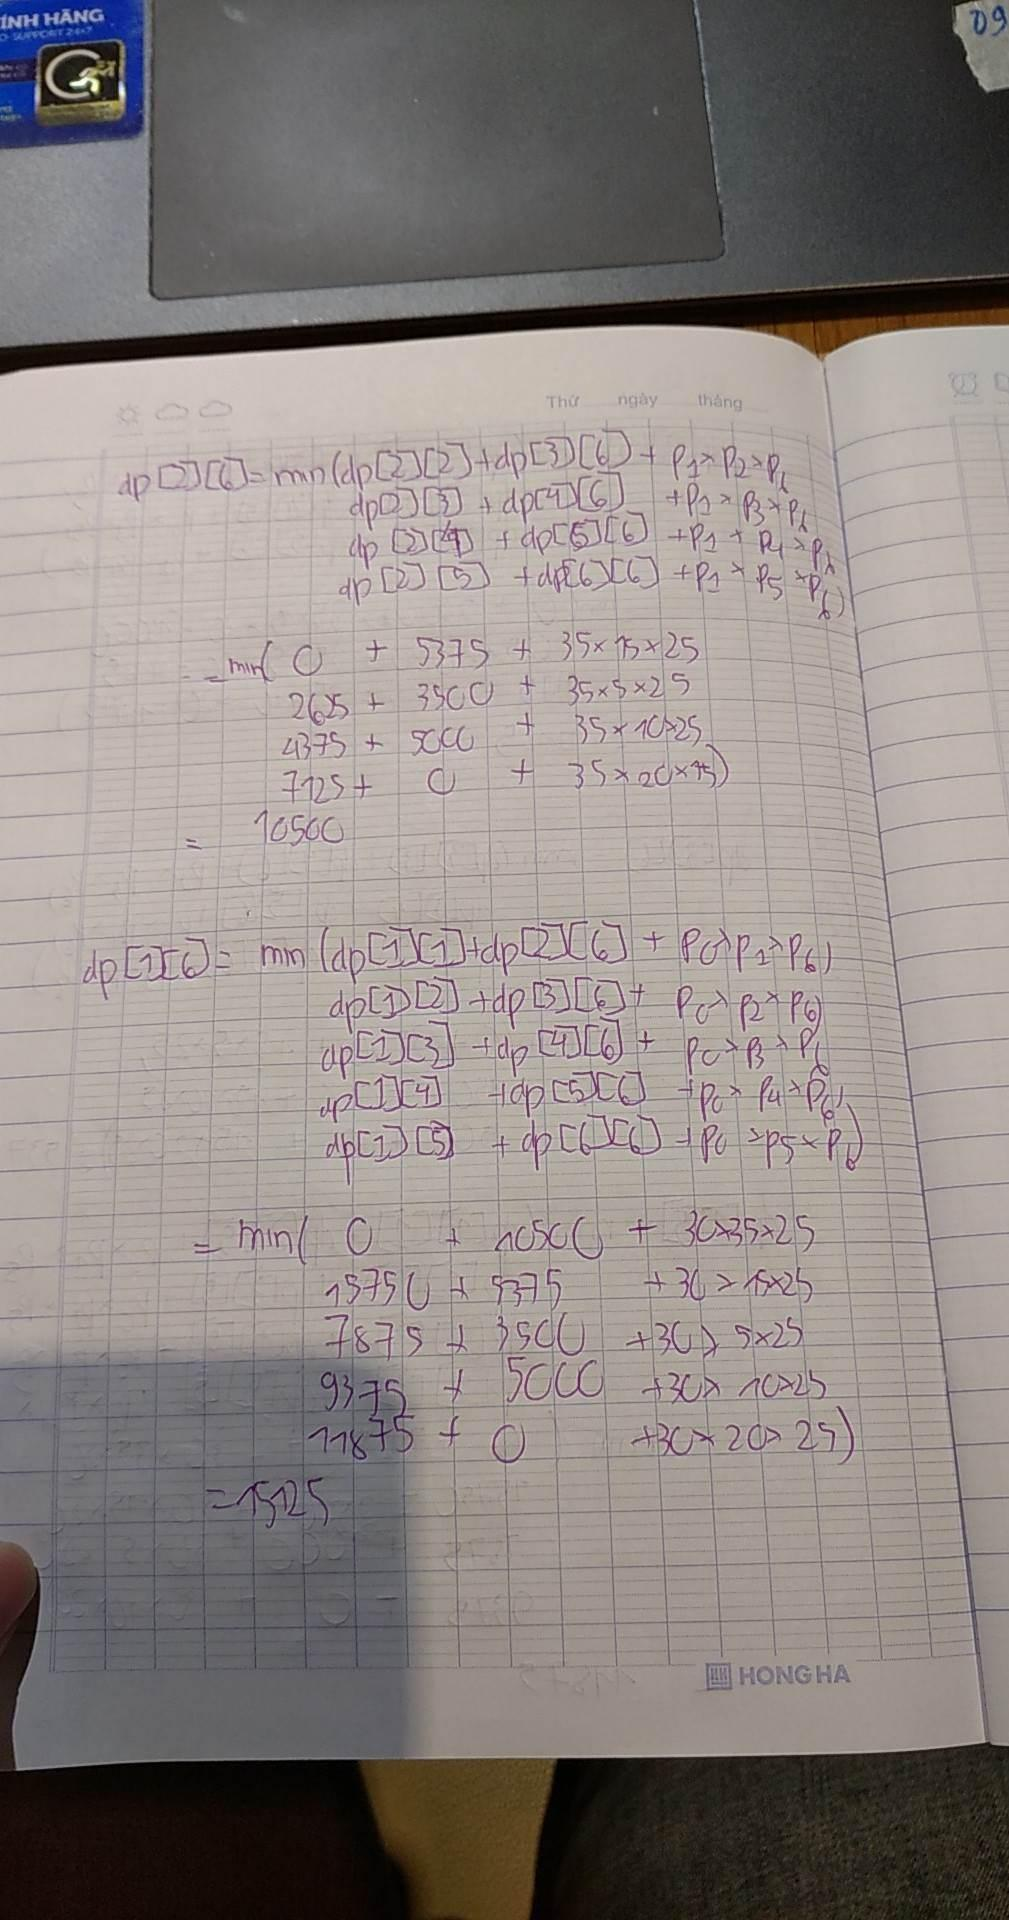 ÍNH HÃNG
SUPPORT 24x7
09
Thứ ngày tháng
dp[2][6] = min(dp[2][2] + dp[3][6] + P1 × P2 × P6
dp[2][3] + dp[4][6] + P1 × P3 × P6
dp[2][4] + dp[5][6] + P1 × P4 × P6
dp[2][5] + dp[6][6] + P1 × P5 × P6)
= min( 0 + 5375 + 35×15×25
2625 + 3500 + 35×5×25
4375 + 5000 + 35×10×25
7125 + 0 + 35×20×25)
= 10500
dp[1][6] = min(dp[1][1] + dp[2][6] + P0 × P1 × P6)
dp[1][2] + dp[3][6] + P0 × P2 × P6)
dp[1][3] + dp[4][6] + P0 × P3 × P6
dp[1][4] + dp[5][6] + P0 × P4 × P6)
dp[1][5] + dp[6][6] + P0 × P5 × P6)
= min( 0 + 10500 + 30×35×25
15750 + 5375 + 30×15×25
7875 + 3500 + 30×5×25
9375 + 5000 + 30×10×25
11875 + 0 + 30×20×25)
= 15125
HONG HA